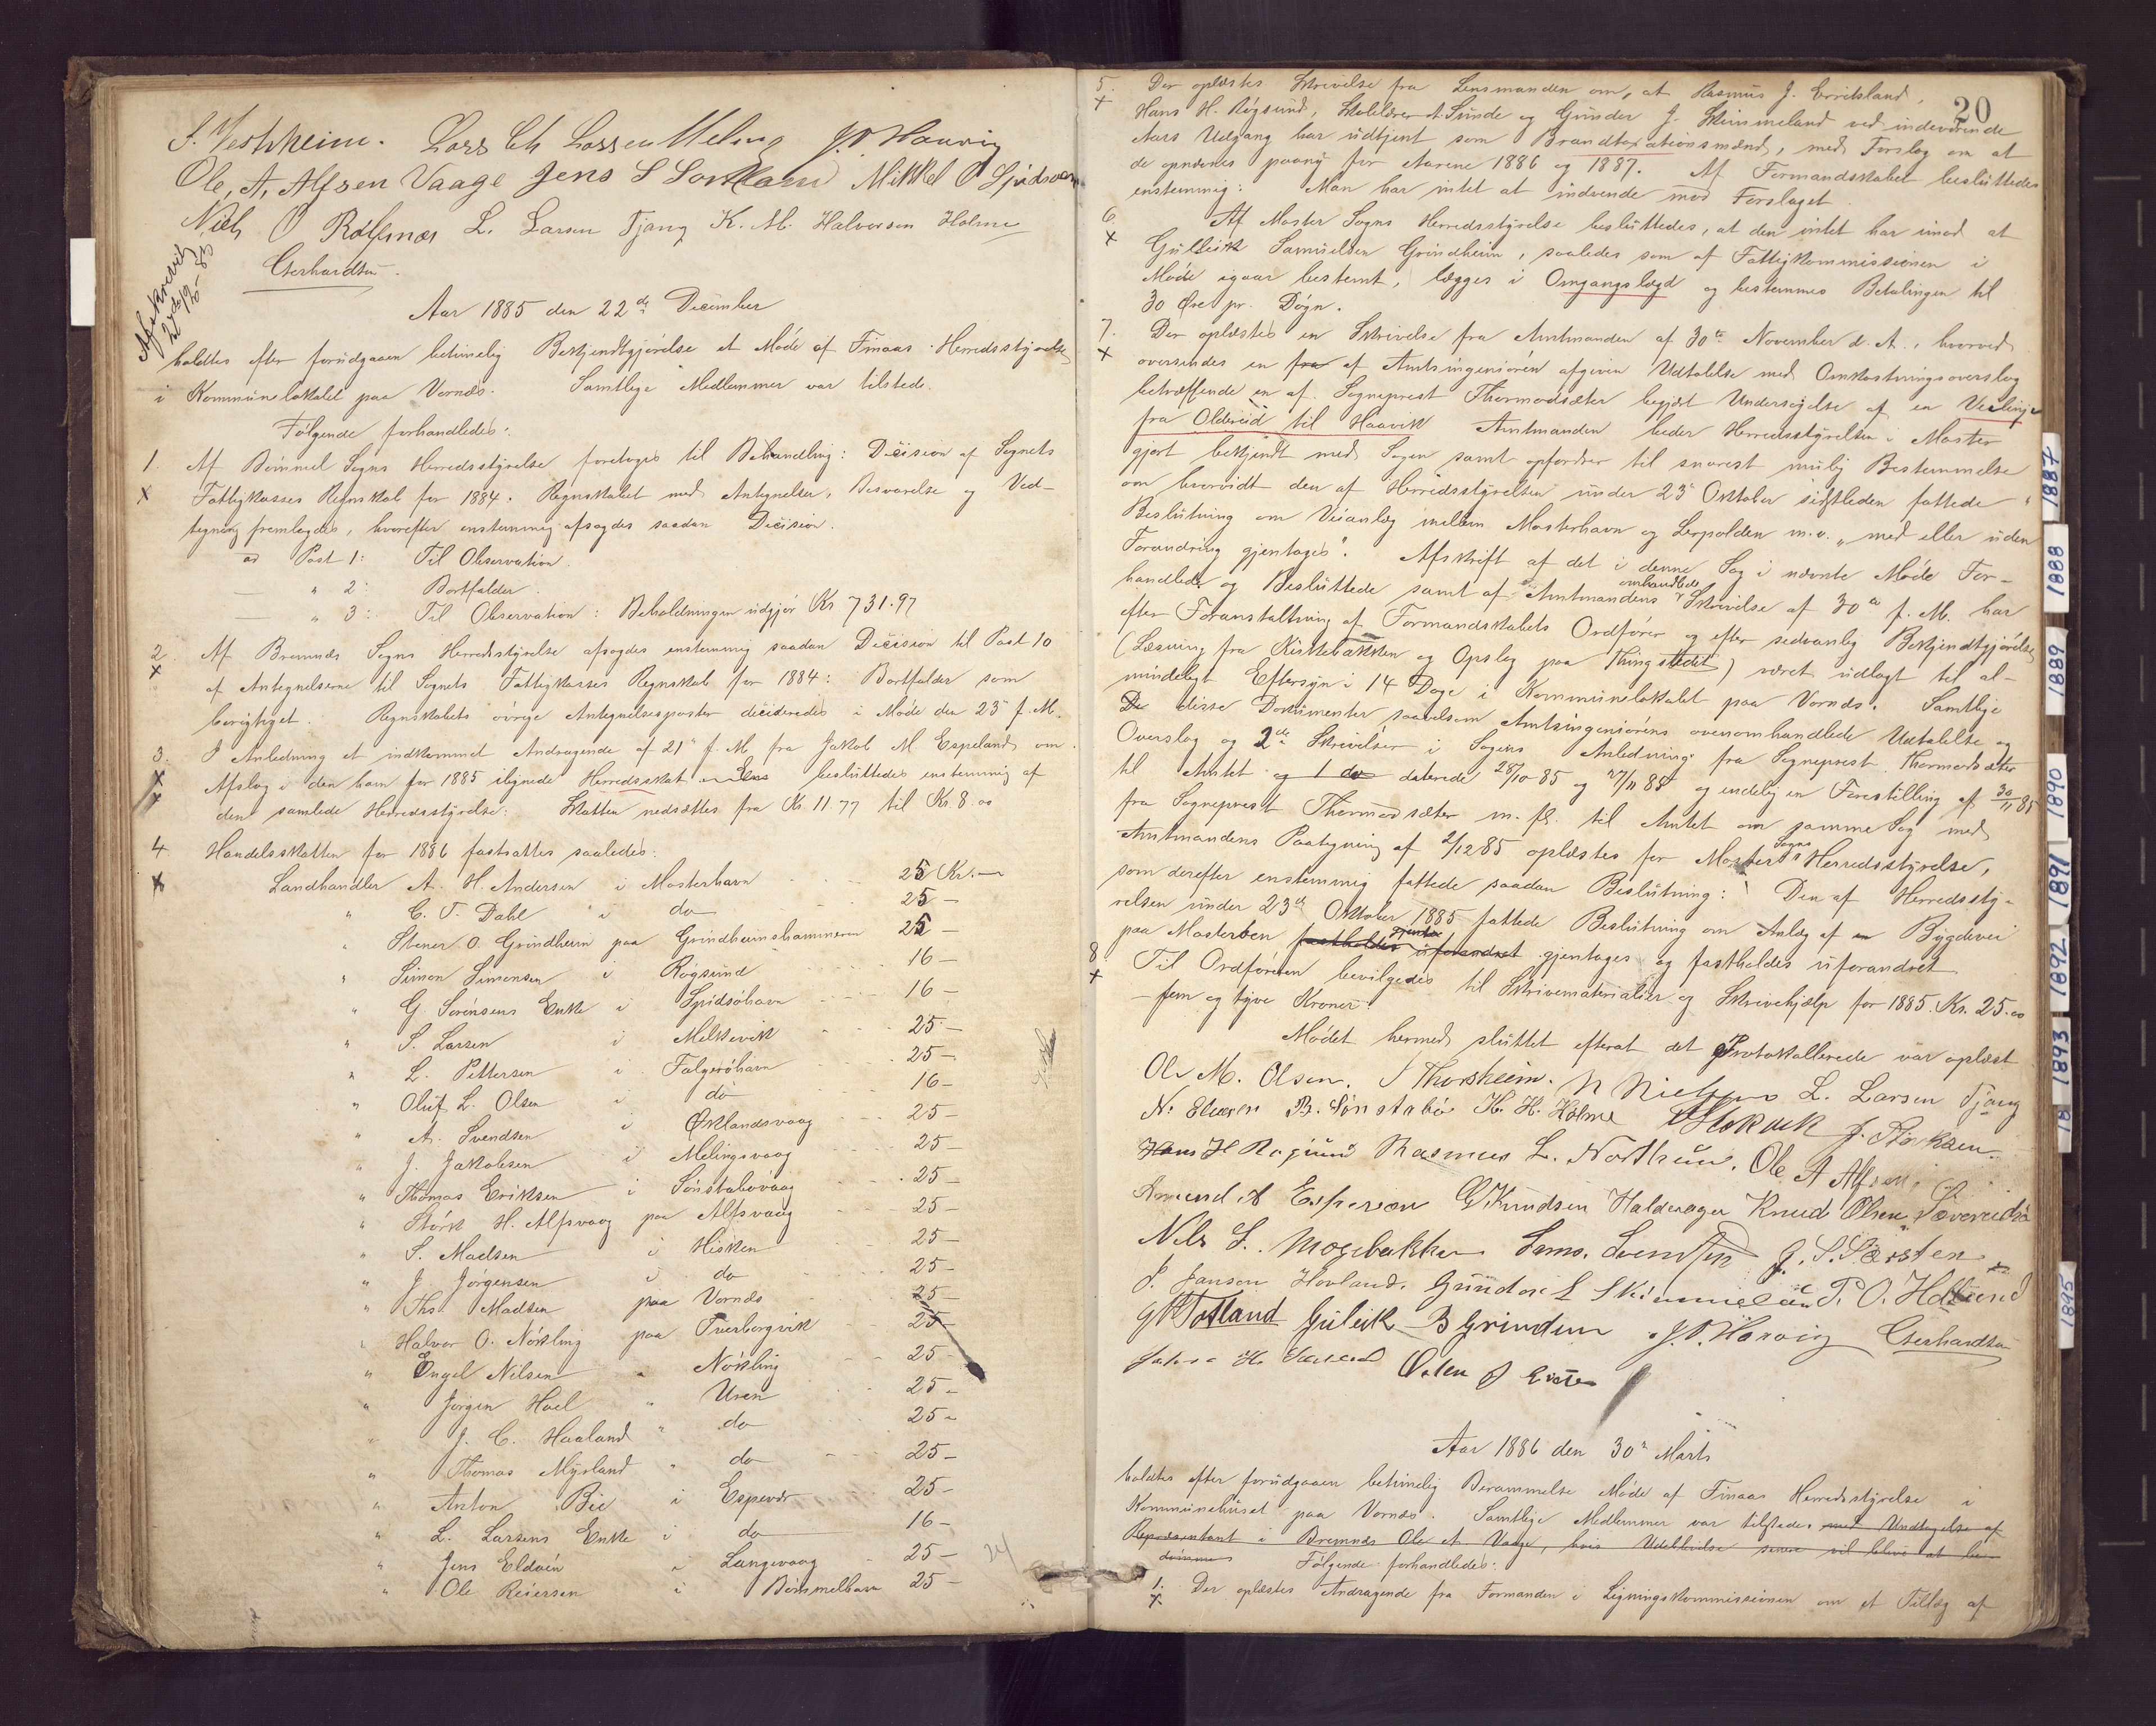 S. Vestvheim. Lars Ch Larsen Meling J. P. Haavig
Ole, A, Alfsen Vaage Jens S Sortland Mikkel O Spidsoen
Niels O Rolfsnæs L. Larsen Tjong K. M. Halvorsen Holme
Gerhardsen.
Afskrevet
Aar 1885 den 22de December
holdtes efter forudgaaen betimelig Bekjendtgjørelse et Møde af Finaas Herredsstyrelse
i Kommunelokalet paa Vornæs. Samtlige Medlemmer var tilstede.
Følgende forhandledes:
1. Af Bømmel Sogns Herredsstyrelse foretoges til Behandling: Decision af Sognets
x Fattigkasses Regnskab for 1884. Regnskabet med Antegnelser, Besvarelse og Ved-
tegning fremlagdes, hvorefter enstemmig afsagdes saadan Decision.
ad Post 1: Til Observation.
— " 2: Bortfalder.
— " 3: Til Observation: Beholdningen udgjør Kr 731.97
2. Af Bremnæs Sogns Herredsstyrelse afsagdes enstemmig saadan Decision til Post 10
x af Antegnelserne til Sognets Fattigkasses Regnskab for 1884: Bortfalder som
berigtiget. Regnskabets øvrige Antegnelsesposter decideredes i Møde den 23de f. M.
3. I Anledning et indkommet Andragende af 21de f. M. fra Jakob M Espeland om
x Afslag i den ham for 1885 ilignede Herredsskat besluttedes enstemmig af
x den samlede Herredsstyrelse: Skatten nedsættes fra Kr. 11.77 til Kr. 8.00
4. Handelsskatten for 1886 fastsattes saaledes:
x Landhandler A. H. Andersen i Mosterhavn 25 Kr.—
" C. T. Dahl i do 25 —
" Stener O. Grindheim paa Grindheimshammeren 25 —
" Simon Simonsen i Røgsund 16 —
" G. Sørensens Enke i Spidsøhavn 16 —
" S. Larsen i Melkevik 25 —
" L. Pettersen i Folgerøhavn 25 —
" Oluf L. Olsen i do 16 —
" A. Svendsen i Øklandsvaag 25 —
" J. Jakobsen i Melingsvaag 25 —
" Thomas Eriksen i Sønstabøvaag 25 —
" Størk H. Alfsvaag paa Alfsvaag 25 —
" S. Madsen i Hisken 25 —
" J. Jørgensen i do 25 —
" Ths. Madsen paa Vornæs 25 —
" Halvor O. Nøkling paa Tverborgvik 25 —
" Engel Nilsen " Nøkling 25 —
" Jørgen Hoel " Uren 25 —
" J. C. Haaland " do 25 —
" Thomas Mysland " do 25 —
" Anton Bie i Espevær 25 —
" L. Larsens Enke i do 16 —
" Jens Eldøen " Langevaag 25 —
" Ole Reiersen i Bømmelhavn 25 —
20
5. Der oplæstes Skrivelse fra Lensmanden om, at Rasmus J. Erritsland,
x Hans H. Røgsund, Skolelærer A. Sunde og Gunder J. Skimmeland ved indeværende
Aars Udgang har udtjent som Brandtaxationsmænd, med Forslag om at
de opnævnes paany for Aarene 1886 og 1887. Af Formandskabet besluttedes
enstemmig: Man har intet at indvende mod Forslaget.
6. Af Moster Sogns Herredsstyrelse besluttedes, at den intet har imod at
x Gulleik Samuelsen Grindheim, saaledes som af Fattigkommissionen i
Møde igaar bestemt, lægges i Omgangslægd og bestemmes Betalingen til
30 Øre pr. Døgn.
7. Der oplæstes en Skrivelse fra Amtmanden af 30te November d. A., hvorved
x oversendes en fra af Amtsingeniøren afgiven Udtalelse med Omkostningsoverslag
betræffende en af Sogneprest Thormodsæter begjært Undersøgelse af en Veilinje
fra Oldereid til Haavik. Amtmanden beder Herredsstyrelsen i Moster
gjort bekjendt med Sagen samt opfordrer til snarest mulig Bestemmelse
om hvorvidt den af Herredsstyrelsen under 23de Oktober sidstleden fattede
Beslutning om Veianlæg mellem Mosterhavn og Lerpolden m.v. „med eller uden
Forandring gjentages". Afskrift af det i denne Sag i nævnte Møde For-
handlede og Besluttede samt af Amtmandens omhandlede Skrivelse af 30te f. M. har
efter Foranstaltning af Formandskabets Ordfører og efter sedvanlig Bekjendtgjørelse
(Læsning fra Kirkebakken og Opslag paa Thingstedet) været udlagt til al-
mindeligt Eftersyn i 14 Dage i Kommunelokalet paa Vornæs. Samtlige
De disse Dokumenter saavelsom Amtsingeniørens ovenomhandlede Udtalelse og
Overslag og 2de Skrivelser i Sagens Anledning fra Sogneprest Thormodsæter
til Amtet og 1 do daterede 28/10-85 og 27/11 85 og endelig en Forestilling af 30/11 85
fra Sogneprest Thormodsæter m. fl. til Amtet om samme Sag med
Amtmandens Paategning af 2/12 85 oplæstes for Moster Sogns Herredsstyrelse,
som derefter enstemmig fattede saadan Beslutning: Den af Herredssty-
relsen under 23de Oktober 1885 fattede Beslutning om Anlæg af en Bygdevei
paa Mosterøen fastholdes uforandret gjentages og fastholdes uforandret
8. Til Ordføreren bevilgedes til Skrivematerialier og Skrivehjælp for 1885 Kr. 25.00
x — fem og tyve Kroner.
Mødet hermed sluttet efterat det Protokollerede var oplæst
Ole M. Olsen. S Thorsheim. N Nielsen L. Larsen Tjong
N. B. Sønstabø H. H. Holme J. Størksen.
Hans H Røgsund Rasmus L. Nordhuus. Ole A Alfsen
Amund A Espevær G Knudsen Halderager Knud Olsen Sæverudsø
Nils S. Mogebakken Sams. Svendsen J. S. Færsten
J. Janson Hovland. Gunder L Skimmeland P. O. Hollund
G K Totland Guleik B Grindem J. P. Haavig Gerhardsen
Aar 1886 den 30te Marts
holdtes efter forudgaaen betimelig Berammelse Møde af Finaas Herredsstyrelse i
Kommunehuset paa Vornæs. Samtlige Medlemmer var tilstede. med Undtagelse af
Repræsentant i Bremnæs Ole A. Vaage, hvis Udeblivelse senere vil blive at be-
dømme Følgende forhandledes:
1. Der oplæstes Andragende fra Formanden i Ligningskommissionen om et Tillæg af
x
1887
1888
1889
1890
1891
1892
1893
18
1895